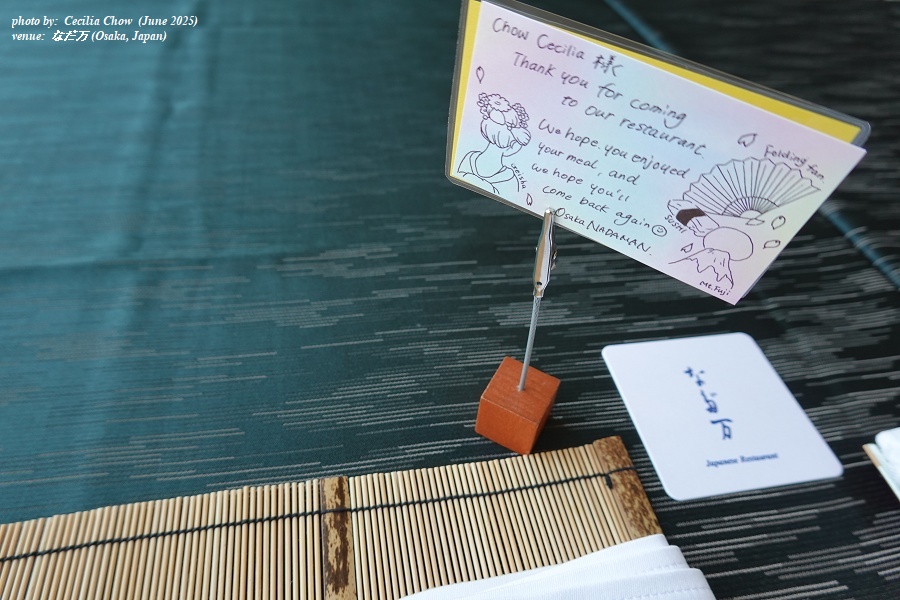 photo by: Cecilia Chow (June 2025)
venue: なだ万 (Osaka, Japan)
Chow Cecilia 様
Thank you for coming
to our restaurant.
We hope you enjoyed
your meal, and
we hope you'll
come back again
Osaka NADAMAN.
Geisha
Folding fan
SUSHI
Mt. Fuji
なだ万
Japanese Restaurant